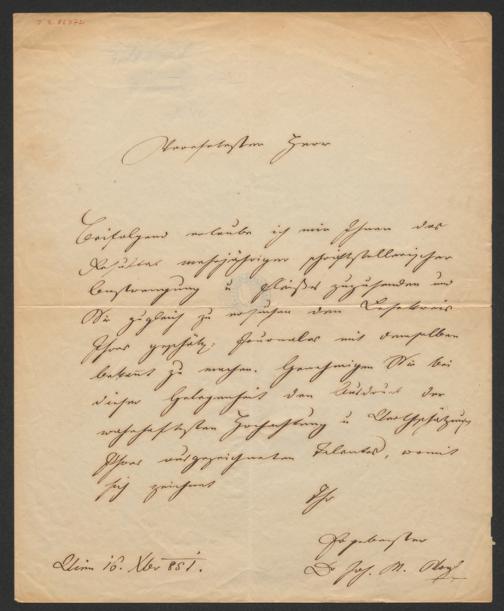 Verehrtester Herr
Beifolgend erlaube ich mir Ihnen das
Resultat mehrjähriger schriftstellerischer
Anstrengung u. Fleißes zuzusenden und
Sie zugleich zu ersuchen den Lesekreis
Ihres geschätz: Journales mit demselben
bekannt zu machen. Genehmigen Sie bei
dieser Gelegenheit den Ausdruck der
wahrhaftesten Hochachtung u. Werthschätzung
Ihres ausgezeichneten Talentes, womit
sich zeichnet
Ihr
Ergebenster
Dr Joh. N. Vogl
Wien 16. Xber 851.